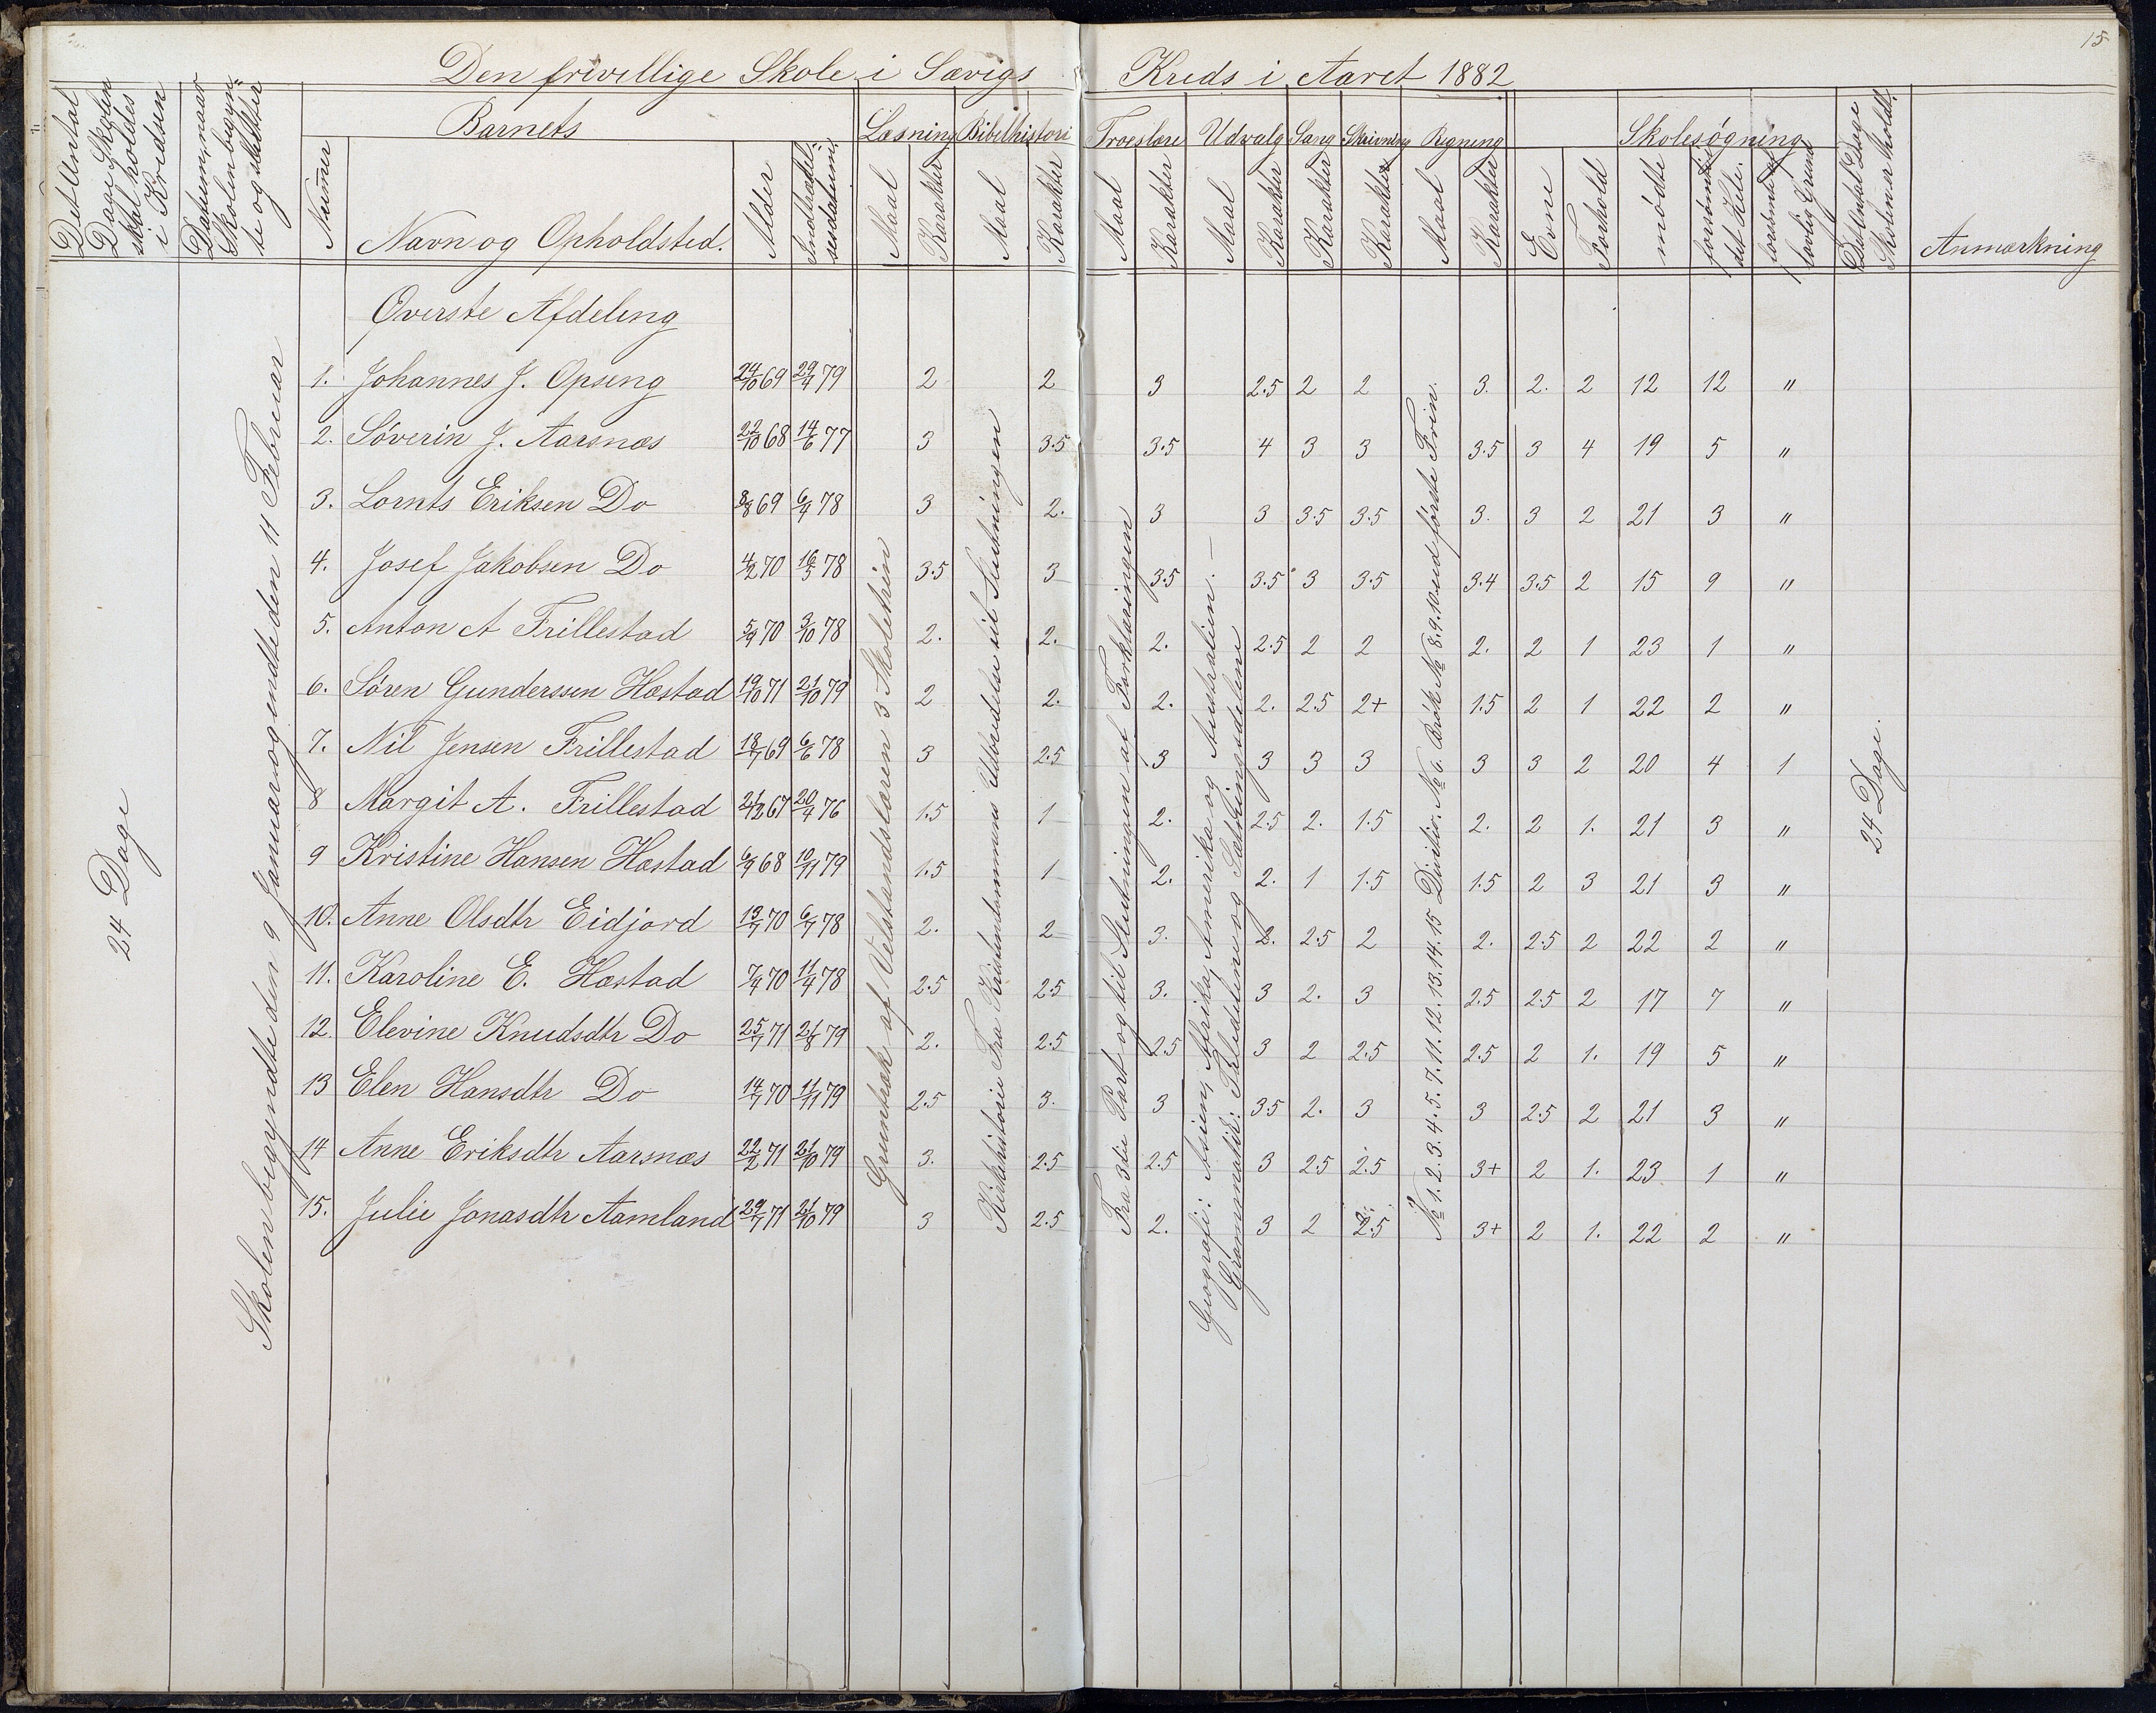 15
Den frivillige Skole i Sævigs Kreds i Aaret 1882
Det Antal Dage Skolen skal holdes i Kredsen
Datum, naar Skolen begyndte og sluttede
Barnets
Læsning Bibelhistori Troeslære Udvalg Sang Skrivning Regning Skolesøgning
Numer Navn og Opholdsted. Alder Indtrædelsesdatum. Maal Karakter Maal Karakter Maal Karakter Maal Karakter Karakter Karakter Maal Karakter Evne Forhold mødte forsømte det Hele. forsømt af lovlig Grund Anmærkning
24 Dage
Skolen begyndte den 9 Januar og endte den 11 Februar
Øverste Afdeling
1. Johannes J. Opseng 24/10 69 29/4 79 2 2 3 2.5 2 2 3. 2. 2 12 12 "
2. Søverin J. Aarsnæs 22/10 68 14/6 77 3 3.5 3.5 4 3 3 3.5 3 4 19 5 "
3. Lornts Eriksen Do 8/8 69 6/4 78 3 2. 3 3 3.5 3.5 3. 3 2 21 3 "
4. Josef Jakobsen Do 4/2 70 16/5 78 3.5 3 3.5 3.5 3 3.5 3.4 3.5 2 15 9 "
5. Anton A Frillestad 5/9 70 3/10 78 2. 2. 2. 2.5 2 2 2. 2 1 23 1 "
6. Søren Gunderssen Hæstad 19/10 71 21/10 79 2 2. 2. 2. 2.5 2+ 1.5 2 1 22 2 "
7. Nil Jensen Frillestad 18/7 69 6/6 78 3 2.5 3 3 3 3 3 3 2 20 4 1
8 Margit A. Frillestad 21/12 67 20/4 76 1.5 1 2. 2.5 2. 1.5 2. 2 1. 21 3 "
9 Kristine Hansen Hæstad 6/9 68 10/11 79 1.5 1 2. 2. 1 1.5 1.5 2 3 21 3 "
10. Anne Olsdtr Eidjord 13/7 70 6/7 78 2. 2 3. 2. 2.5 2 2. 2.5 2 22 2 "
11. Karoline E. Hæstad 7/4 70 11/4 78 2.5 2.5 3. 3 2. 3 2.5 2.5 2 17 7 "
12. Elevine Knudsdtr Do 25/7 71 21/8 79 2. 2.5 2.5 3 2 2.5 2.5 2 1. 19 5 "
13 Elen Hansdtr Do 14/7 70 11/11 79 2.5 3. 3 3.5 2. 3 3 2.5 2 21 3 "
14 Anne Eriksdtr Aarsnæs 22/2 71 21/10 79 3. 2.5 2.5 3 2.5 2.5 3+ 2 1. 23 1 "
15. Julie Jonasdtr Aamland 29/7 71 21/10 79 3 2.5 2. 3 2 2.5 3+ 2 1. 22 2 "
af Velstandslæren 3 Skoletrin
Kirkehistorie Fra Kristendommens Udbredelse til Slutningen
Fra 3die Part og til Slutningen af Forklaringen
Geografi: Asien, Afrika, Amerika og Australien. —
Grammatik: og
No 1. 2. 3. 4. 5. 7. 11. 12. 13. 14. 15 Division. No 6. Brøk No 8. 9. 10. ud første Trin.
24 Dage.